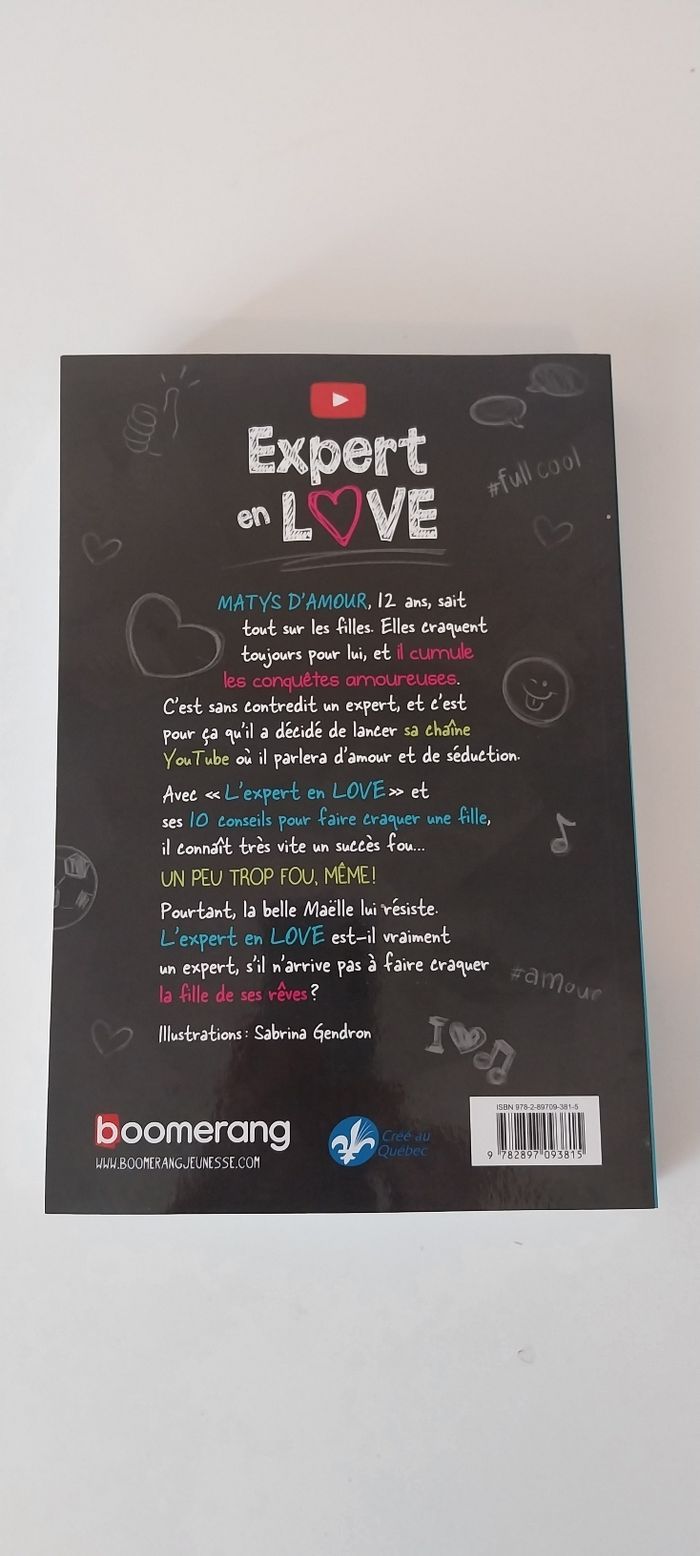 Expert
en LOVE
#full cool
MATYS D'AMOUR, 12 ans, sait
tout sur les filles. Elles craquent
toujours pour lui, et il cumule
les conquêtes amoureuses.
C'est sans contredit un expert, et c'est
pour ça qu'il a décidé de lancer sa chaîne
YouTube où il parlera d'amour et de séduction.
Avec « L'expert en LOVE » et
ses 10 conseils pour faire craquer une fille,
il connaît très vite un succès fou...
UN PEU TROP FOU, MÊME!
Pourtant, la belle Maëlle lui résiste.
L'expert en LOVE est-il vraiment
un expert, s'il n'arrive pas à faire craquer
la fille de ses rêves?
#amour
Illustrations: Sabrina Gendron
I
boomerang
WWW.BOOMERANGJEUNESSE.COM
Créé au
Québec
ISBN 978-2-89709-381-5
9 782897 093815